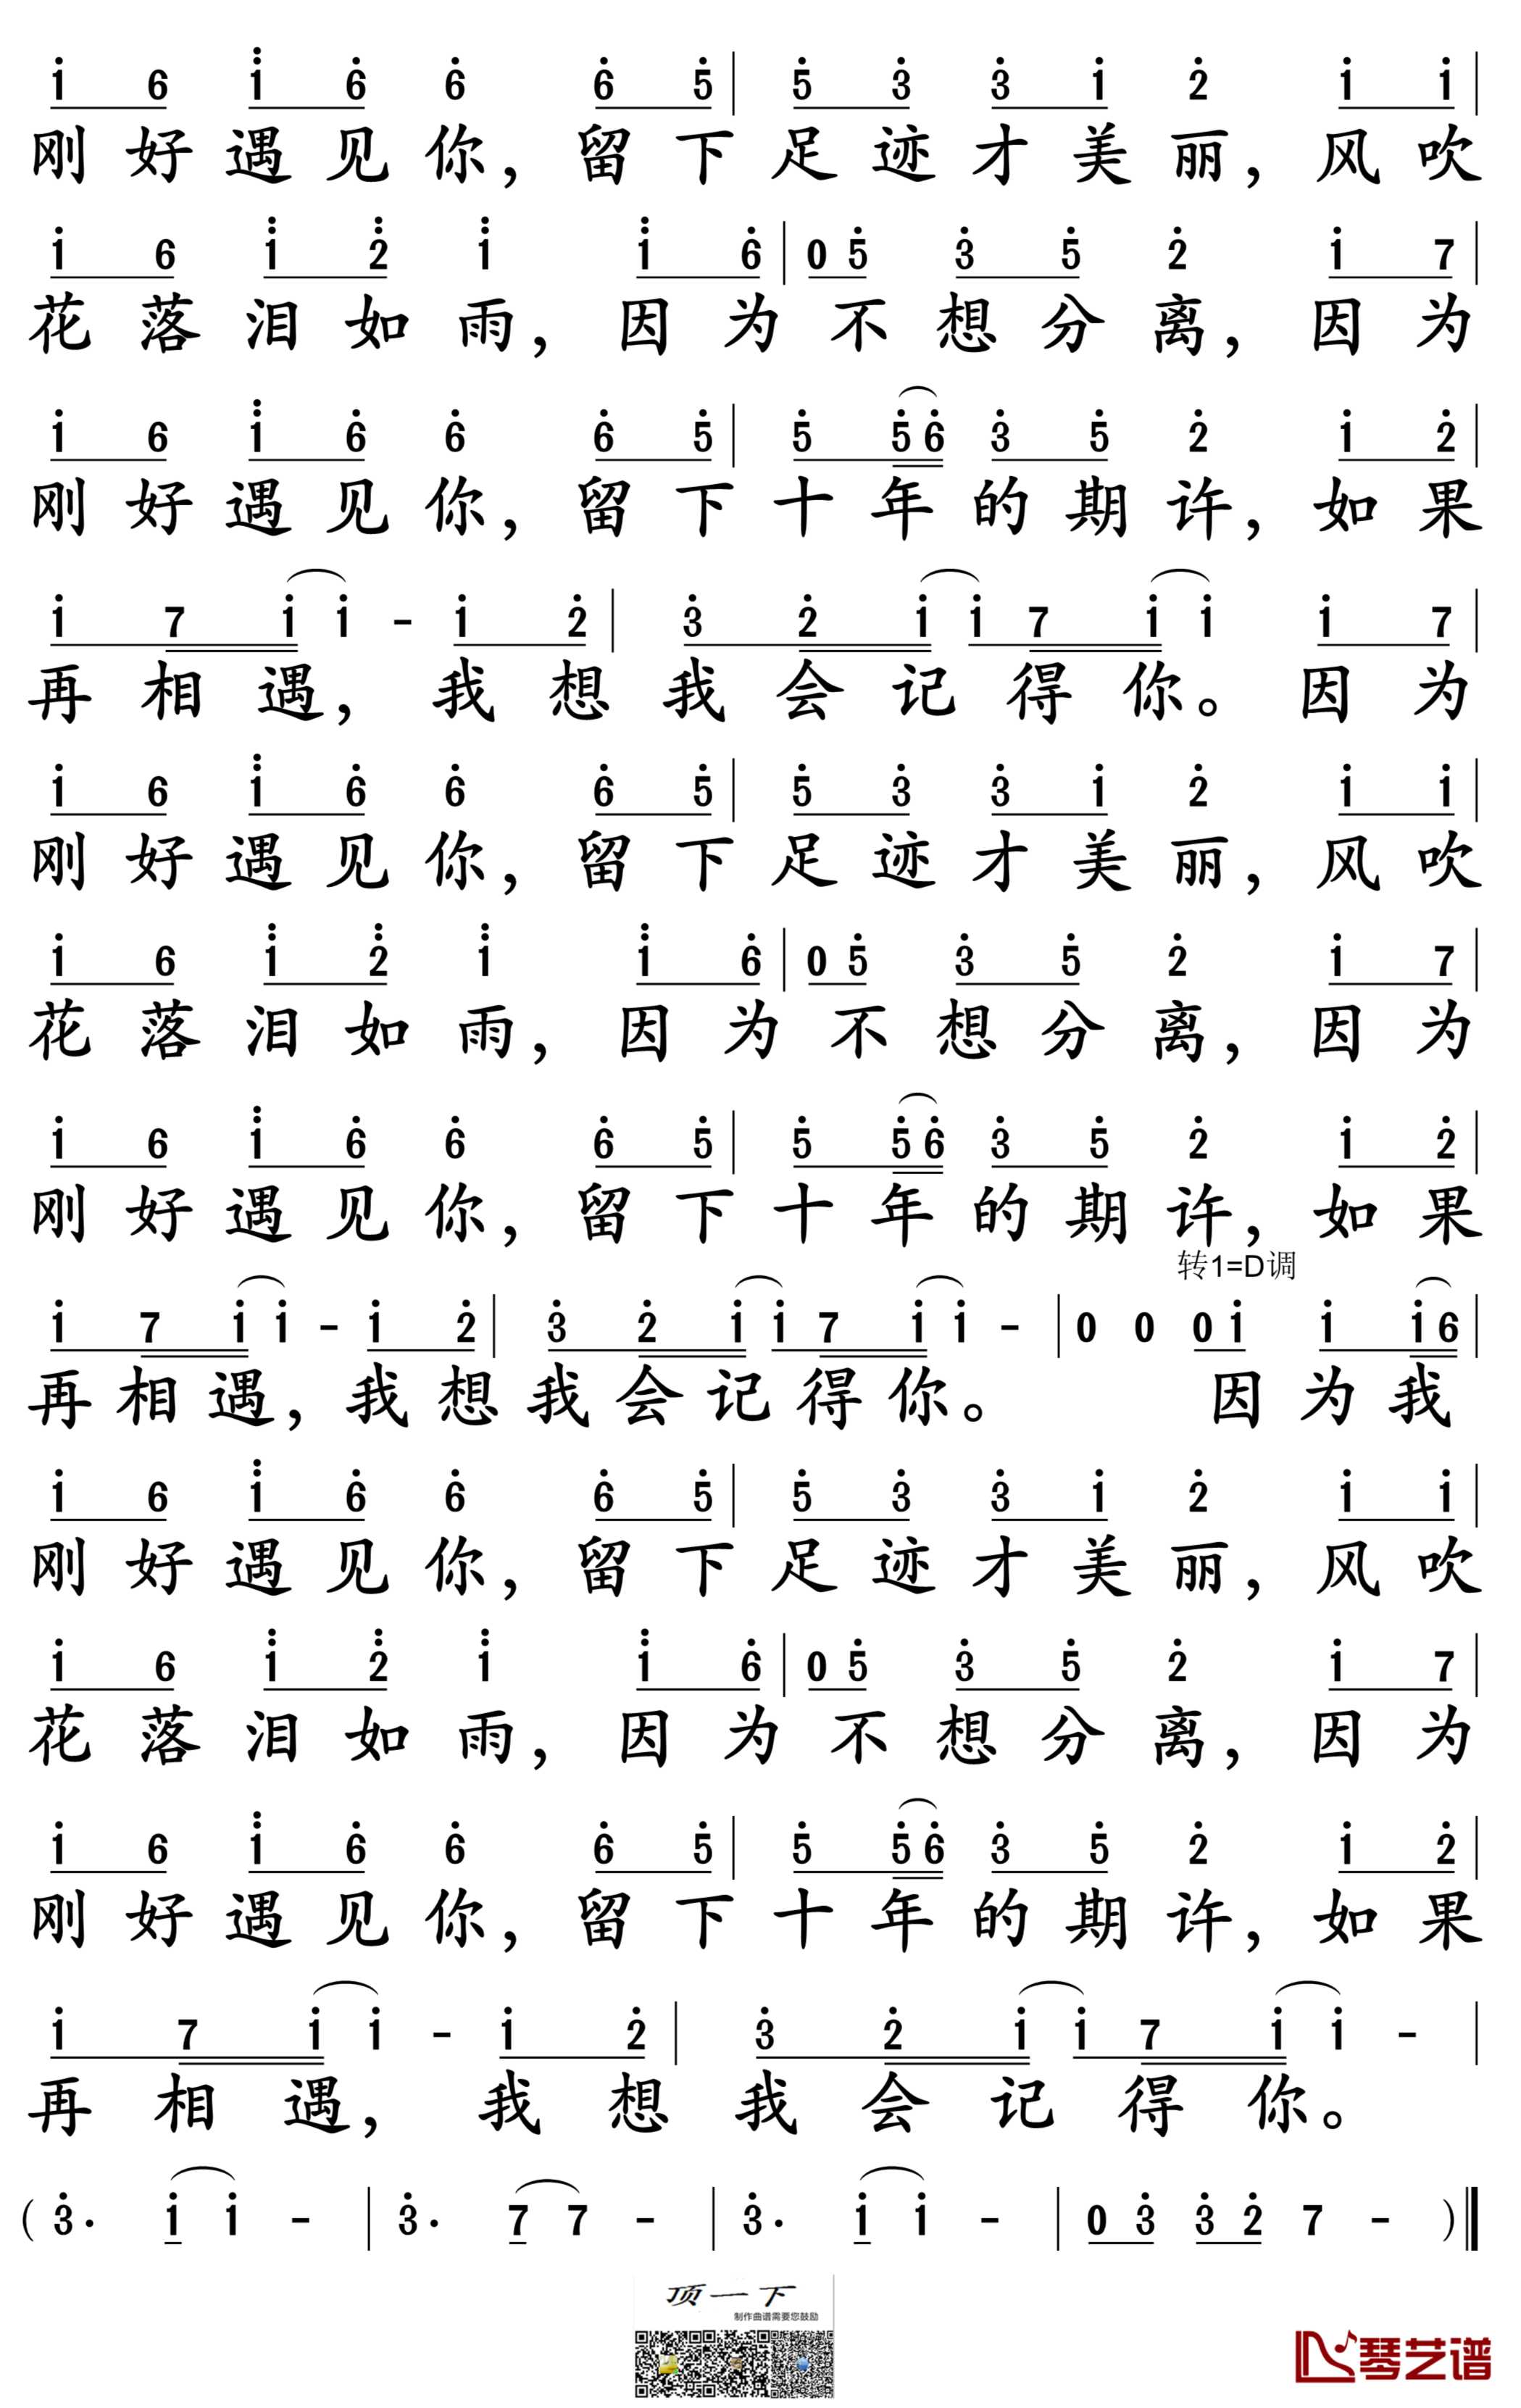 i 6 i 6 6 6 5 | 5 3 3 i 2 i i |
刚好遇见你，留下足迹才美丽，风吹
i 6 i 2 i i 6 | 0 5 3 5 2 i 7 |
花落泪如雨，因为不想分离，因为
i 6 i 6 6 6 5 | 5 5 6 3 5 2 i 2 |
刚好遇见你，留下十年的期许，如果
i 7 i i - i 2 | 3 2 i i 7 i i i 7 |
再相遇，我想我会记得你。因为
i 6 i 6 6 6 5 | 5 3 3 i 2 i i |
刚好遇见你，留下足迹才美丽，风吹
i 6 i 2 i i 6 | 0 5 3 5 2 i 7 |
花落泪如雨，因为不想分离，因为
i 6 i 6 6 6 5 | 5 5 6 3 5 2 i 2 |
刚好遇见你，留下十年的期许，如果
转1=D调
i 7 i i - i 2 | 3 2 i i 7 i i - | 0 0 0 i i i 6 |
再相遇，我想我会记得你。因为我
i 6 i 6 6 6 5 | 5 3 3 i 2 i i |
刚好遇见你，留下足迹才美丽，风吹
i 6 i 2 i i 6 | 0 5 3 5 2 i 7 |
花落泪如雨，因为不想分离，因为
i 6 i 6 6 6 5 | 5 5 6 3 5 2 i 2 |
刚好遇见你，留下十年的期许，如果
i 7 i i - i 2 | 3 2 i i 7 i i - |
再相遇，我想我会记得你。
( 3· i i - | 3· 7 7 - | 3· i i - | 0 3 3 2 7 - )
顶一下
制作曲谱需要您鼓励
琴艺谱